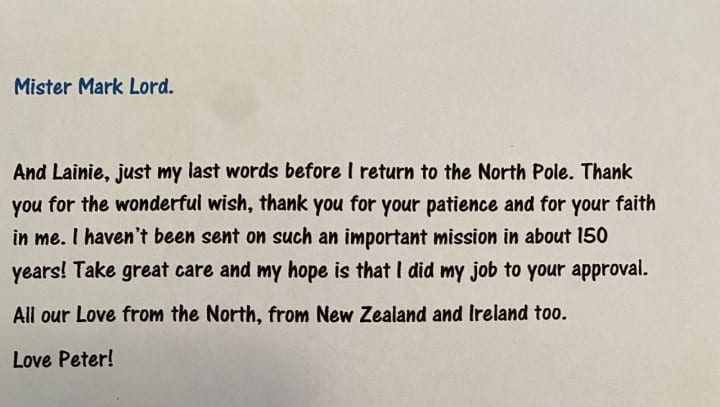 Mister Mark Lord.
And Lainie, just my last words before I return to the North Pole. Thank
you for the wonderful wish, thank you for your patience and for your faith
in me. I haven't been sent on such an important mission in about 150
years! Take great care and my hope is that I did my job to your approval.
All our Love from the North, from New Zealand and Ireland too.
Love Peter!